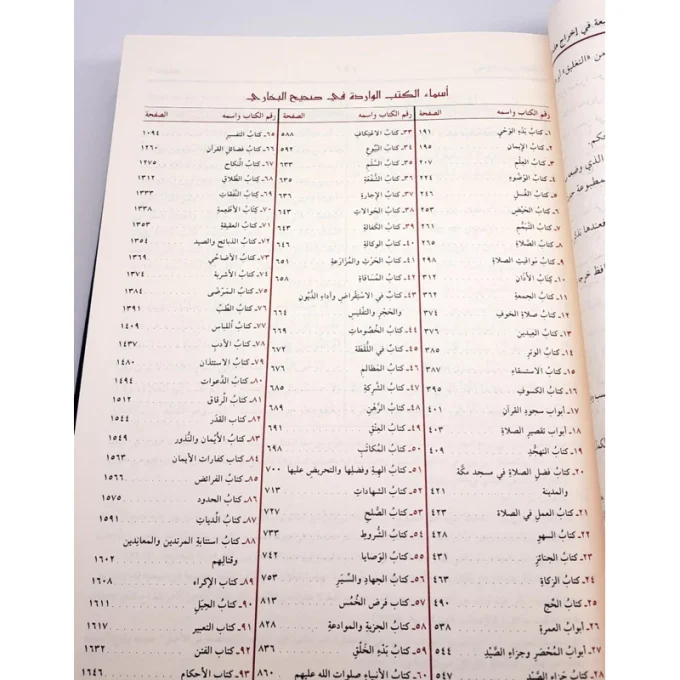 أسماء الكتب الواردة في صحيح البخاري
رقم الكتاب واسمه الصفحة
١ـ كتابُ بَدْءِ الوَحْيِ ١٩١
٢ـ كتابُ الإيمان ١٩٥
٣ـ كتابُ العِلْمِ ٢٠٧
٤ـ كتابُ الوُضُوءِ ٢٢٤
٥ـ كتابُ الغُسلِ ٢٤٦
٦ـ كتابُ الحَيْضِ ٢٥٣
٧ـ كتابُ التَّيَمُّمِ ٢٦١
٨ـ كتابُ الصَّلاةِ ٢٦٥
٩ـ كتابُ مَوَاقيتِ الصلاةِ ٢٩٨
١٠ـ كتابُ الأذانِ ٣١٢
١١ـ كتابُ الجمعةِ ٣٦٢
١٢ـ كتابُ صلاةِ الخوفِ ٣٧٤
١٣ـ كتابُ العِيدَين ٣٧٦
١٤ـ كتابُ الوِترِ ٣٨٥
١٥ـ كتابُ الاستسقاءِ ٣٨٧
١٦ـ كتابُ الكسوفِ ٣٩٥
١٧ـ أبوابُ سجودِ القرآن ٤٠١
١٨ـ أبوابُ تقصيرِ الصلاة ٤٠٣
١٩ـ كتابُ التهجُّدِ ٤٠٩
٢٠ـ كتابُ فضلِ الصلاةِ في مسجد مكَّة
والمدينة ٤٢١
٢١ـ كتابُ العملِ في الصلاة ٤٢٤
٢٢ـ كتابُ السهوِ ٤٢٨
٢٣ـ كتابُ الجنائزِ ٤٣١
٢٤ـ كتابُ الزكاةِ ٤٦٣
٢٥ـ كتابُ الحَجِّ ٤٩٠
٢٦ـ أبوابُ العمرةِ ٥٣٨
٢٧ـ أبوابُ المُحْصَرِ وجزاءِ الصَّيْدِ ٥٤٤
٢٨ـ كتابُ جزاءِ الصَّيْدِ ٥٤٧
رقم الكتاب واسمه الصفحة
٣٣ـ كتابُ الاعتِكافِ ٥٨٨
٣٤ـ كتابُ البُيُوعِ ٥٩٢
٣٥ـ كتابُ السَّلَمِ ٦٣٣
٣٦ـ كتابُ الشُّفْعَةِ ٦٣٥
٣٧ـ كتابُ الإجارةِ ٦٣٦
٣٨ـ كتابُ الحَوَالاتِ ٦٤٣
٣٩ـ كتابُ الكفالةِ ٦٤٣
٤٠ـ كتابُ الوكالةِ ٦٤٦
٤١ـ كتابُ الحَرْثِ والمُزَارَعةِ ٦٥١
٤٢ـ كتابُ المُسَاقاةِ ٦٥٨
٤٣ـ كتابُ في الاسْتِقْراضِ وأداءِ الدُّيُونِ
والحَجْرِ والتَّفْليسِ ٦٦٤
٤٤ـ كتابُ الخُصُوماتِ ٦٦٩
٤٥ـ كتابٌ في اللُّقَطَةِ ٦٧٢
٤٦ـ كتابُ المظالمِ ٦٧٦
٤٧ـ كتابُ الشَّرِكةِ ٦٨٥
٤٨ـ كتابُ الرَّهْنِ ٦٨٩
٤٩ـ كتابُ العِتْقِ ٦٩١
٥٠ـ كتابُ المُكاتَبِ ٦٩٨
٥١ـ كتابُ الهبةِ وفضلِها والتحريضِ عليها ٧٠٠
٥٢ـ كتابُ الشهاداتِ ٧١٣
٥٣ـ كتابُ الصُّلحِ ٧٢٧
٥٤ـ كتابُ الشُّروطِ ٧٣٣
٥٥ـ كتابُ الوَصايا ٧٤٢
٥٦ـ كتابُ الجهادِ والسِّيَرِ ٧٥٣
٥٧ـ كتابُ فرضِ الخُمُسِ ٨١٣
٥٨ـ كتابُ الجزيةِ والموادعةِ
٥٩ـ كتابُ بَدْءِ الخَلْقِ
٦٠ـ كتابُ الأنبياءِ صلوات الله عليهم
رقم الكتاب واسمه الصفحة
٦٥ـ كتابُ التفسيرِ ١٠٩٤
٦٦ـ كتابُ فضائلِ القرآن ١٢٦٠
٦٧ـ كتابُ النِّكاحِ ١٢٧٥
٦٨ـ كتابُ الطَّلاقِ ١٣١٢
٦٩ـ كتابُ النَّفَقاتِ ١٣٣٣
٧٠ـ كتابُ الأطْعِمةِ ١٣٣٨
٧١ـ كتابُ العقيقةِ ١٣٥٣
٧٢ـ كتابُ الذبائحِ والصيد ١٣٥٤
٧٣ـ كتابُ الأضاحيِّ ١٣٦٩
٧٤ـ كتابُ الأشربةِ ١٣٧٤
٧٥ـ كتابُ المَرْضَى ١٣٨٤
٧٦ـ كتابُ الطِّبِّ ١٣٩١
٧٧ـ كتابُ اللباسِ ١٤٠٩
٧٨ـ كتابُ الأدبِ ١٤٣٧
٧٩ـ كتابُ الاستئذان ١٤٨٠
٨٠ـ كتابُ الدَّعوات ١٤٩٤
٨١ـ كتابُ الرِّقاق ١٥١٢
٨٢ـ كتاب القدَر ١٥٤٤
٨٣ـ كتابُ الأَيْمانِ والنُّذور ١٥٤٩
٨٤ـ كتاب كفارات الأيمان
٨٥ـ كتابُ الفرائضِ ١٥٦٦
٨٦ـ كتابُ الحدود ١٥٧٥
٨٧ـ كتابُ الدِّياتِ ١٥٩١
٨٨ـ كتابُ استتابةِ المرتدين والمعانِدين
وقتالِهم ١٦٠٢
٨٩ـ كتاب الإكراه ١٦٠٨
٩٠ـ كتابُ الحِيَلِ ١٦١١
٩١ـ كتابُ التعبير ١٦١٧
٩٢ـ كتابُ الفتن ١٦٣٢
٩٣ـ كتابُ الأحكام ١٦٤٦